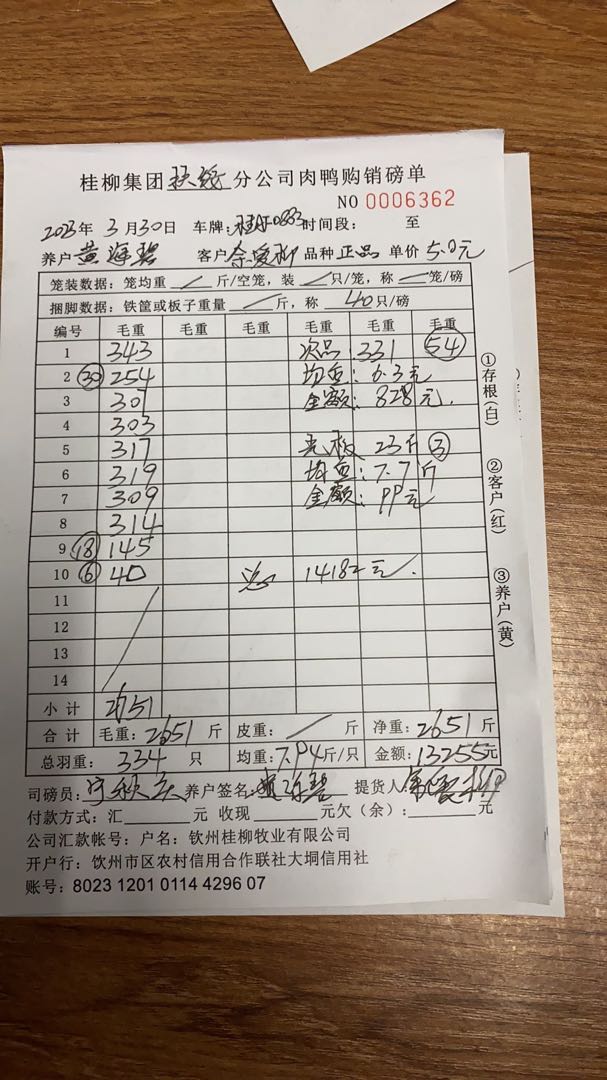 桂柳集团 钦线 分公司肉鸭购销磅单
NO 0006362
2023年 3月30日 车牌: 时间段: 至
养户 黄海碧 客户 余爱柳 品种 正品 单价 5.0元
笼装数据: 笼均重 / 斤/空笼, 装 / 只/笼, 称 / 笼/磅
捆脚数据: 铁筐或板子重量 / 斤, 称 40只/磅
编号 毛重 毛重 毛重 毛重 毛重 毛重
1 343 次品 331 54
2 30 254 均重: 6.3元
3 301 金额: 828元.
4 303
5 317 光板 23斤 3
6 319 均重: 7.7斤
7 309 金额: 99元
8 314
9 18 145
10 6 40 总 14182元.
11
12
13
14
小计 2651
合计 毛重: 2651 斤 皮重: / 斤 净重: 2651 斤
总羽重: 334 只 均重: 7.94斤/只 金额: 13255元
司磅员: 养户签名: 黄海碧 提货人: 余爱柳
付款方式: 汇 元 收现 元欠(余): 元
公司汇款帐号: 户名: 钦州桂柳牧业有限公司
开户行: 钦州市区农村信用合作联社大垌信用社
账号: 8023 1201 0114 4296 07
①存根(白)
②客户(红)
③养户(黄)